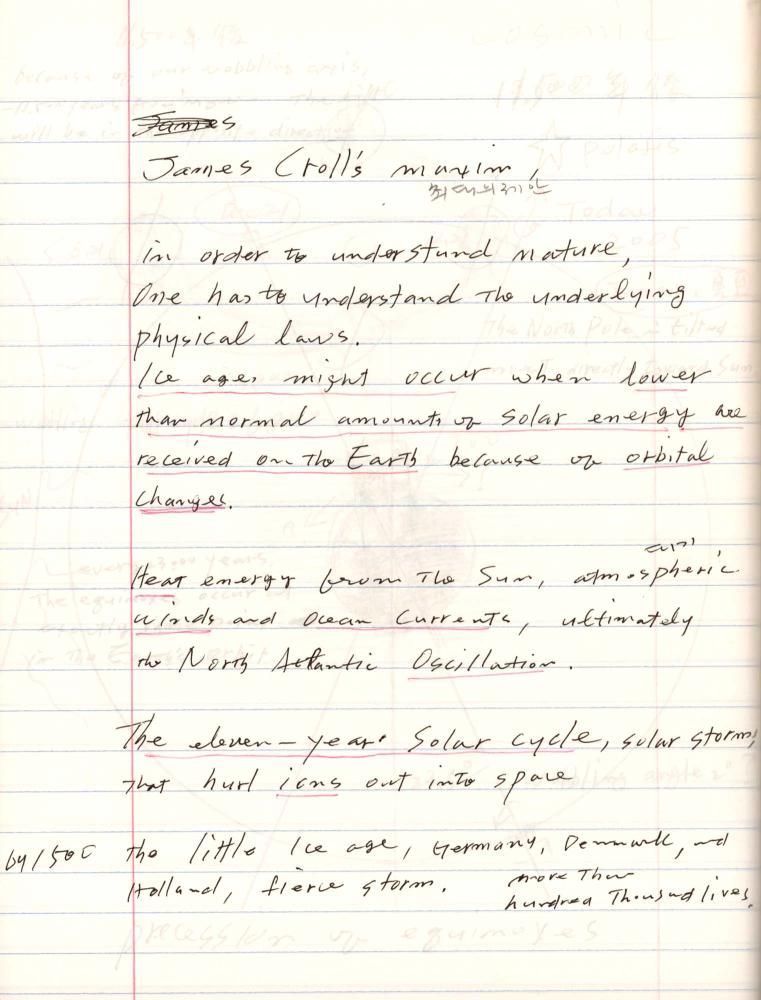 James
James Croll's maxim,
최대의 제안
in order to understand nature,
One has to understand The underlying
physical laws.
Ice ages might occur when lower
than normal amounts of solar energy are
received on The Earth because of orbital
changes.
Heat energy from The Sun, atmospheric
winds and ocean currents, ultimately
the North Atlantic Oscillation.
The eleven-year Solar cycle, solar storms,
That hurl ions out into space
by 1500 The little Ice age, Germany, Denmark, and
Holland, fierce storm. more Than
hundred Thousand lives.
precession of equinoxes